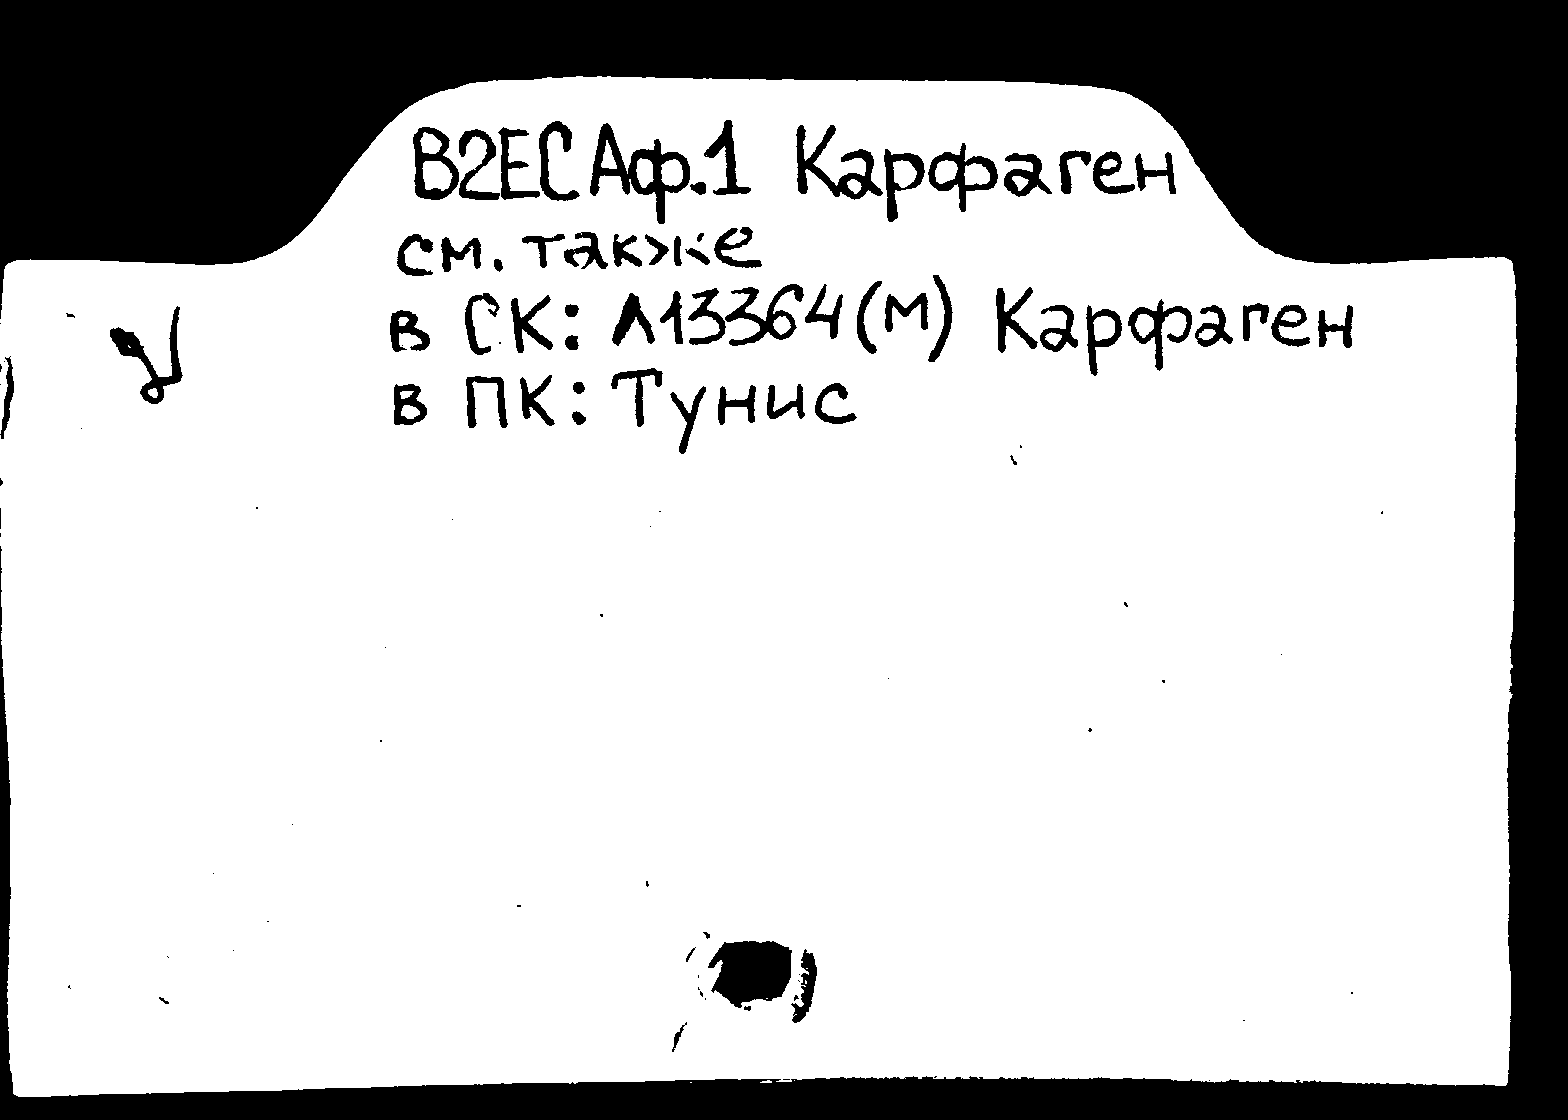 В2ЕСАф.1 Карфаген
см. также
в СК: Л13364(М) Карфаген
в ПК: Тунис